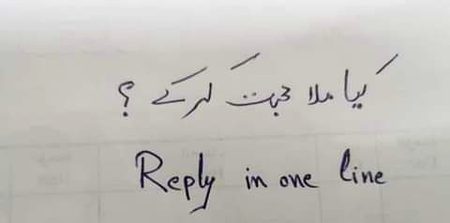 کیا ملا محبت کرکے ؟
Reply in one line